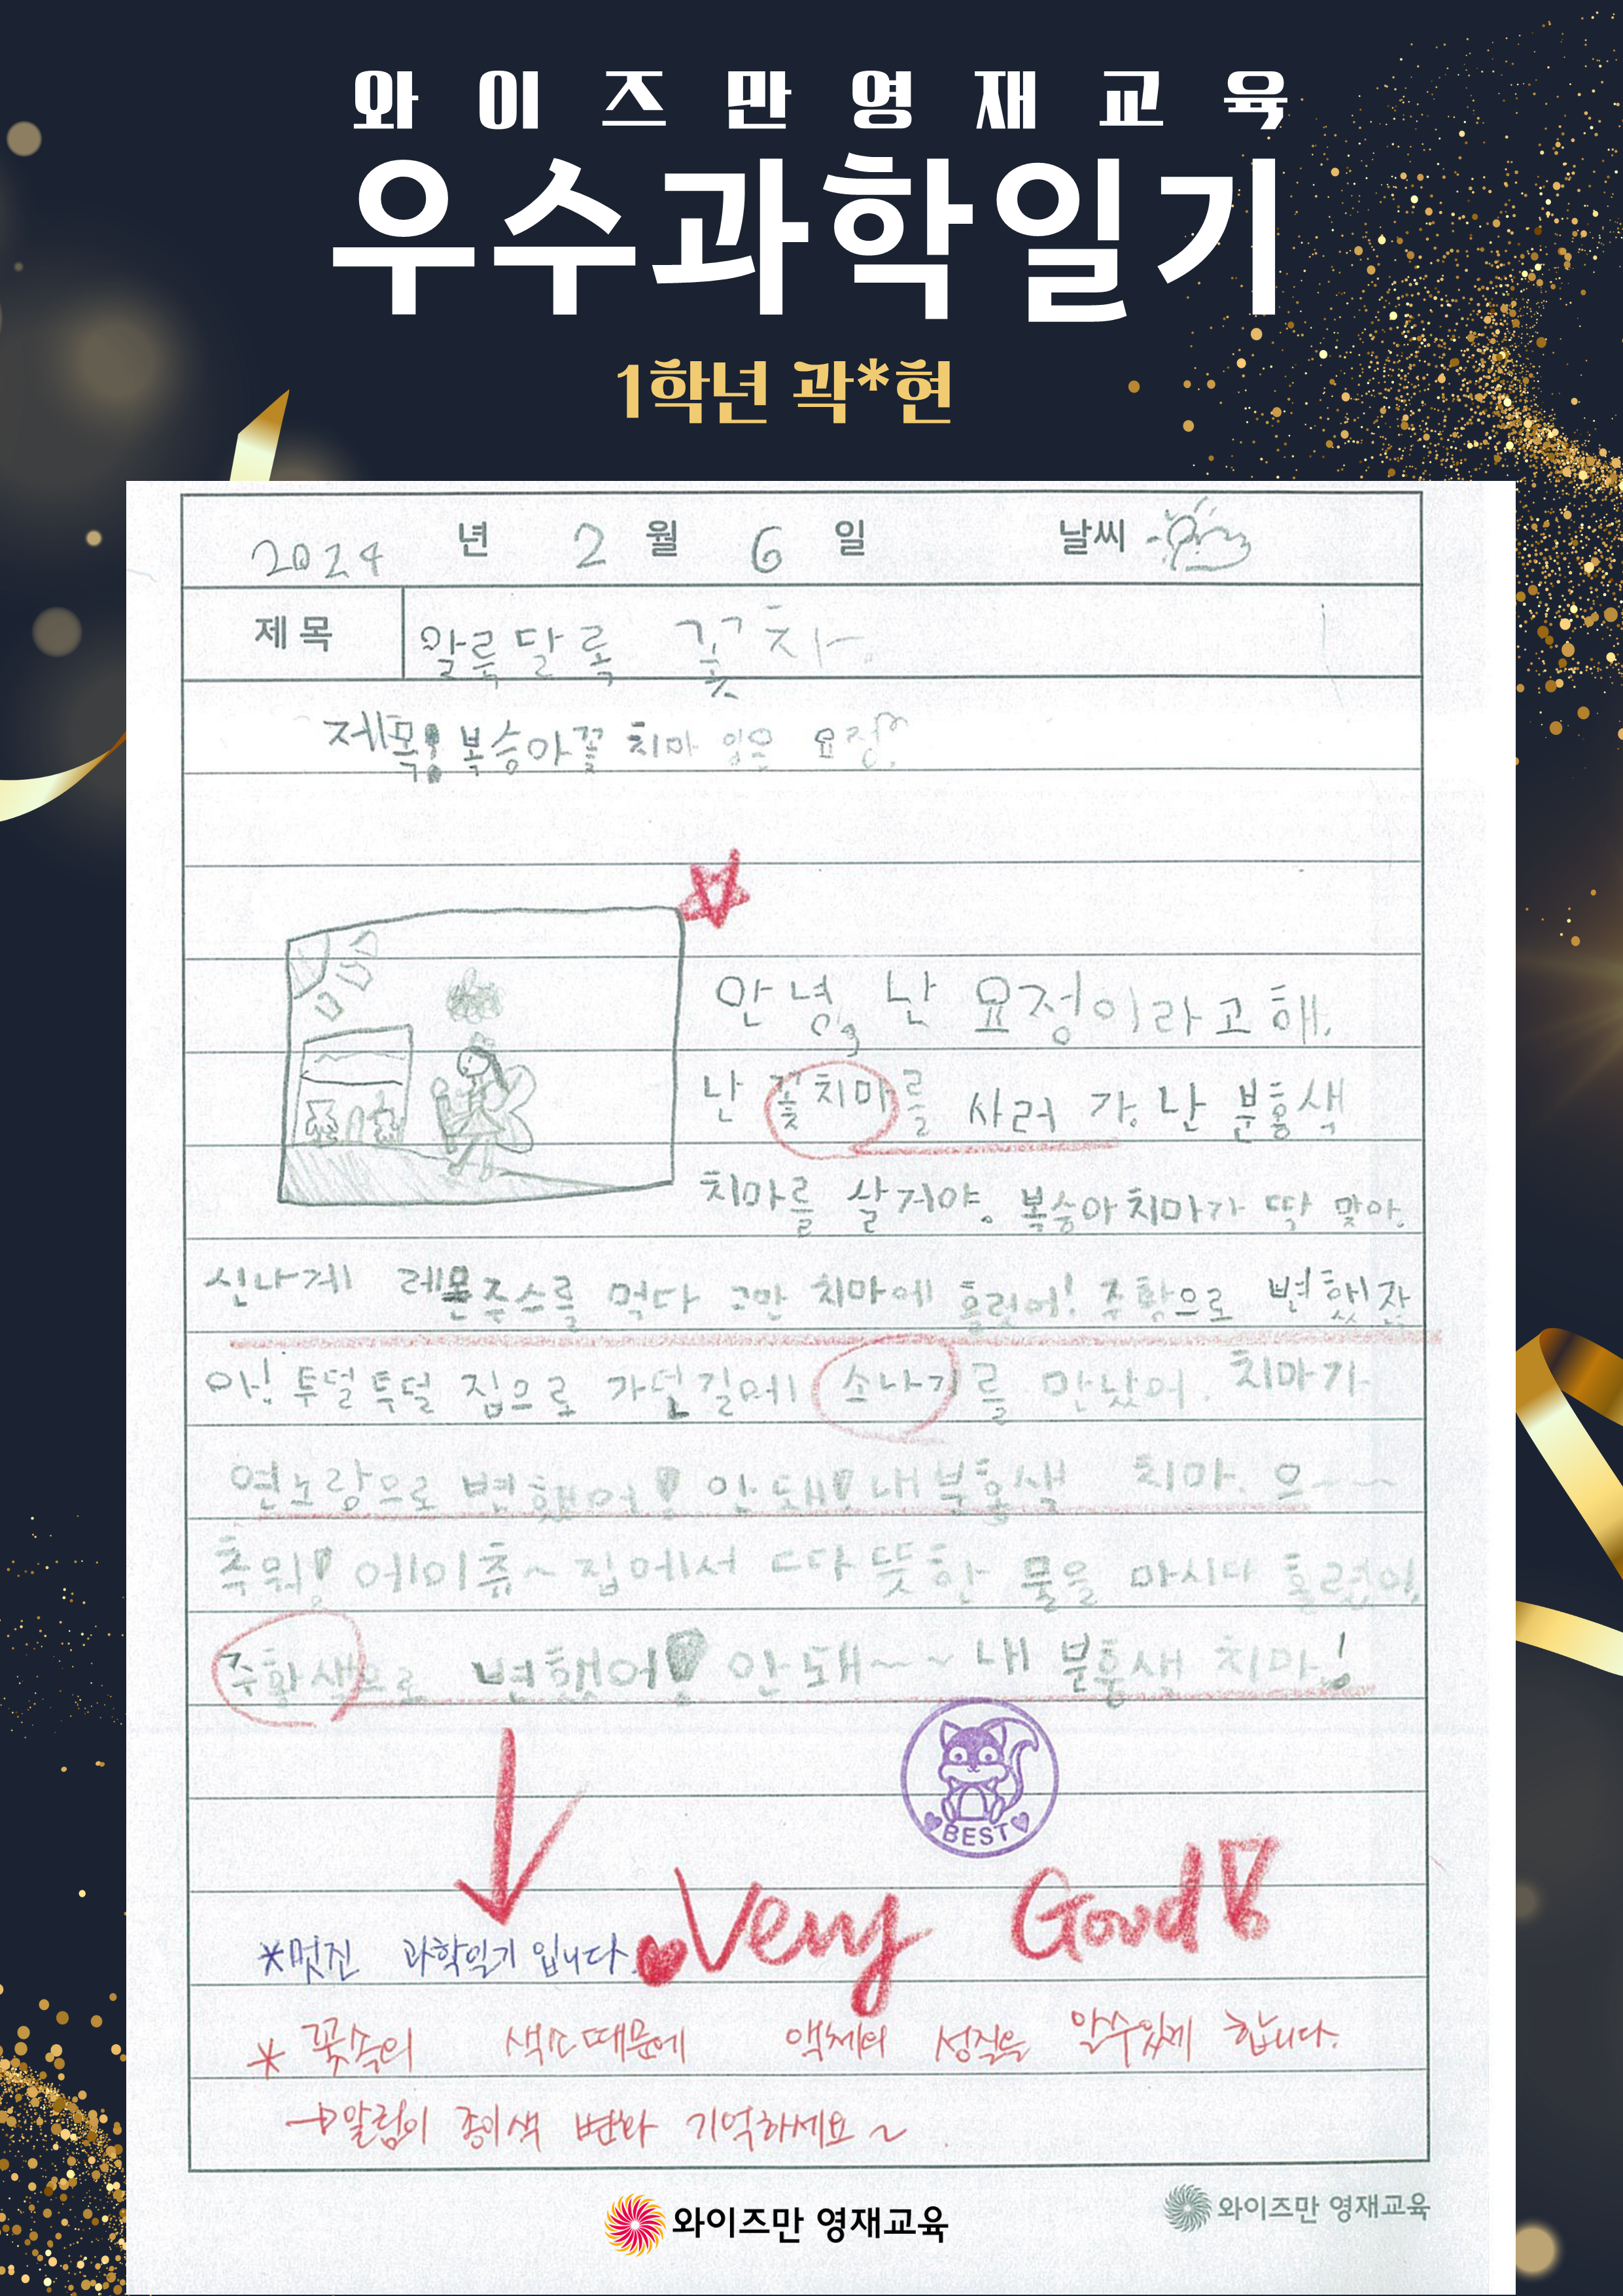 와이즈만영재교육
우수과학일기
1학년 곽*현
2024 년 2 월 6 일 날씨
제목 알록달록 꽃차.
제목! 복숭아꽃 치마 입은 요정
안녕, 난 요정이라고 해.
난 꽃치마를 사러 가. 난 분홍색
치마를 살거야. 복숭아치마가 딱 맞아.
신나게 레몬주스를 먹다 그만 치마에 흘렀어! 주황으로 변했잖
아! 투덜투덜 집으로 가던길에 소나기를 만났어. 치마가
연노랑으로 변했어! 안돼! 내 분홍색 치마. 으~~
추워! 에이츄~ 집에서 따뜻한 물을 마시다 흘렸어.
주황색으로 변했어! 안돼~~ 내 분홍색 치마!
BEST
Very Good!
*멋진 과학일기 입니다.
* 꽃속의 색소때문에 액체의 성질을 알수있게 합니다.
→알림이 종이색 변화 기억하세요~
와이즈만 영재교육
와이즈만 영재교육